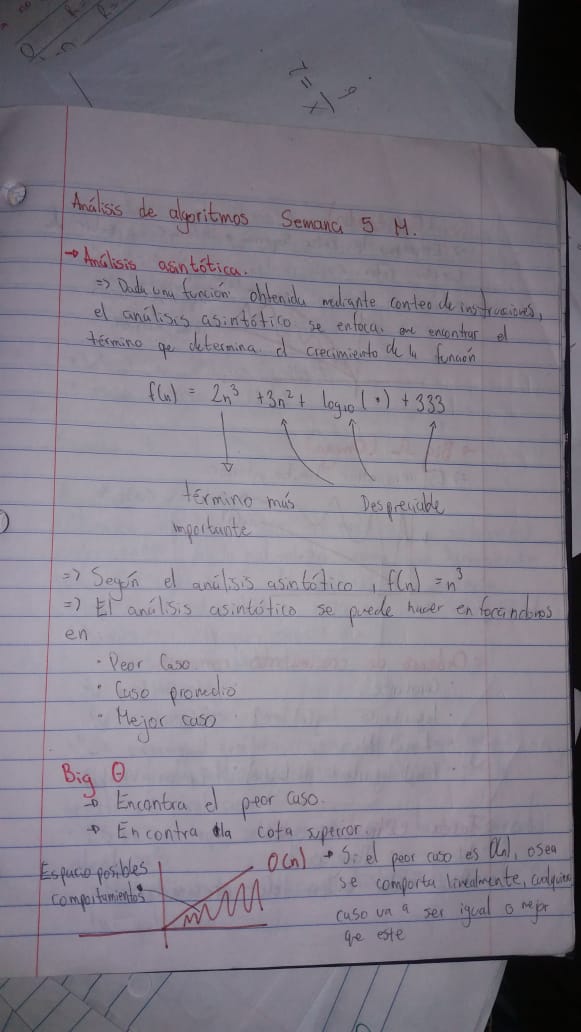 Análisis de algoritmos Semana 5 M.
→ Análisis asintótica.
=> Dada una función obtenida mediante conteo de instrucciones,
el análisis asintótico se enfoca en encontrar el
término qe determina el crecimiento de la función
f(n) = 2n³ + 3n² + log₁₀(•) + 333
término más Despreciable
importante
=> Según el análisis asintótico, f(n) = n³
=> El análisis asintótico se puede hacer enfocandonos
en
• Peor Caso
• Caso promedio
• Mejor caso
Big Θ
→ Encontra el peor caso.
→ Encontra la cota superior
Espacio posibles
comportamientos
O(n) → Si el peor caso es O(n), osea
se comporta linealmente, cualquier
caso va a ser igual o mejor
que este